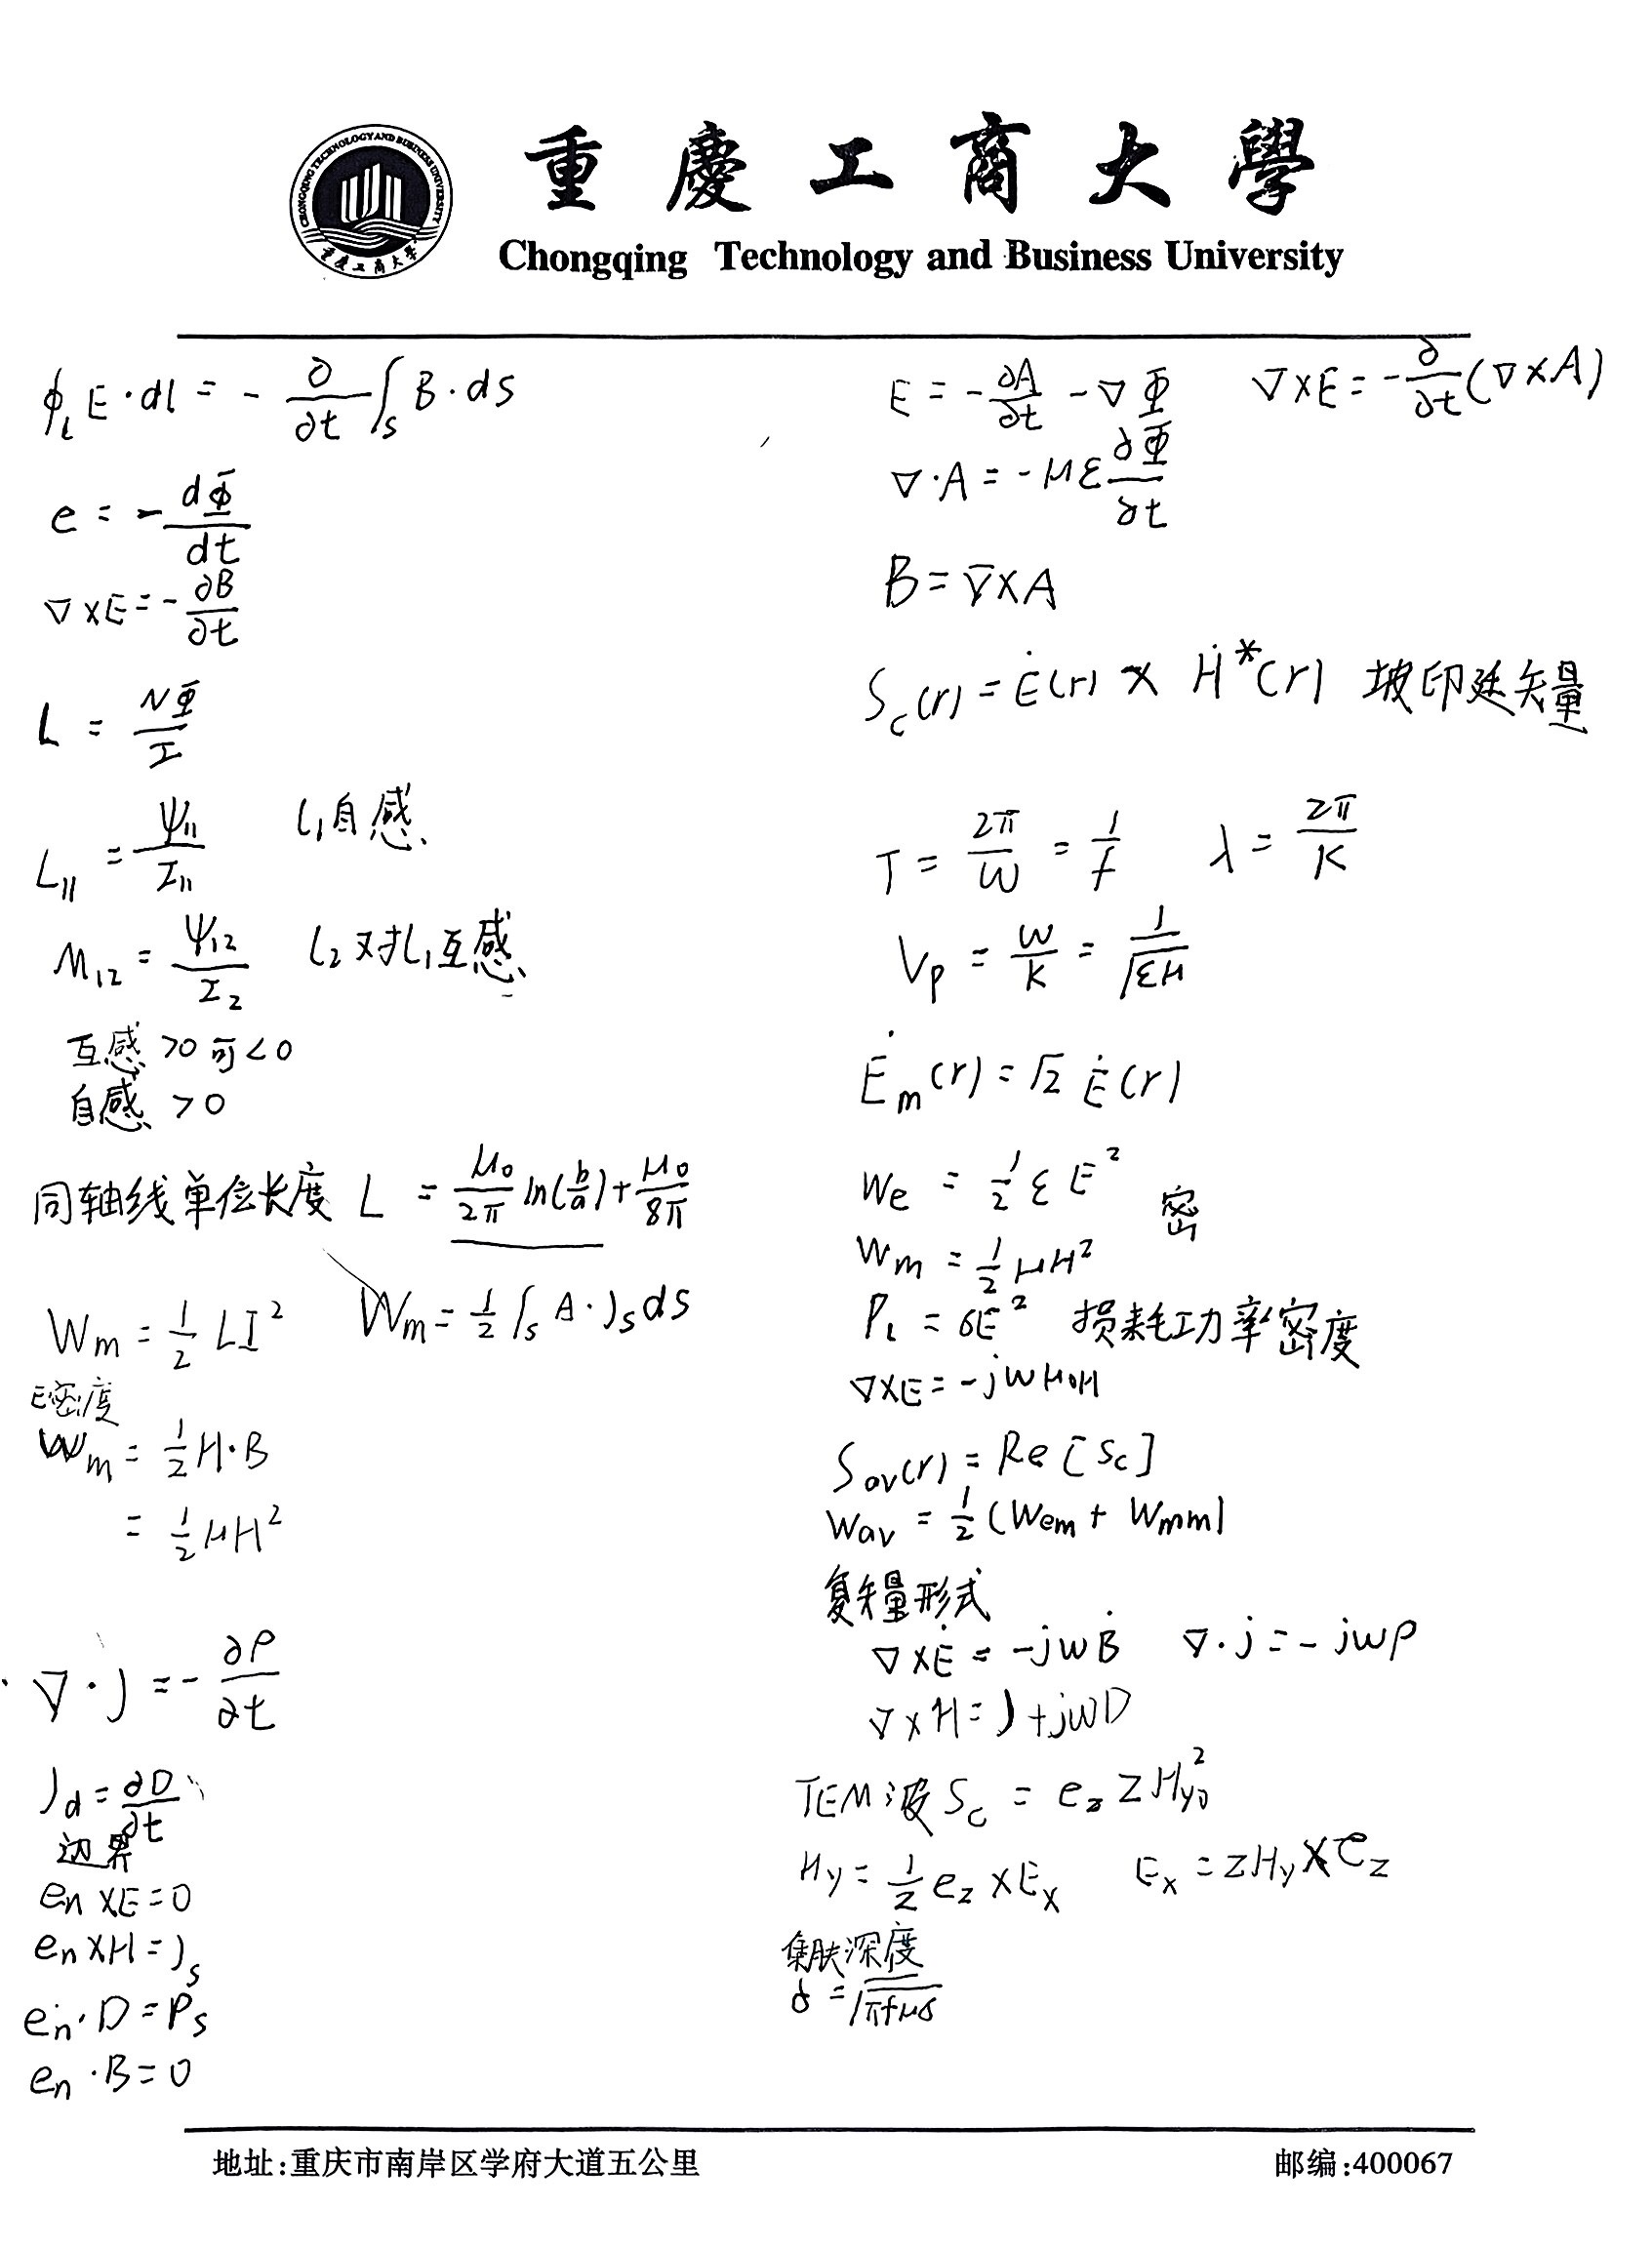 CHONGQING TECHNOLOGY AND BUSINESS UNIVERSITY
重庆工商大学
重慶工商大學
Chongqing Technology and Business University
∮_l E·dl = - ∂/∂t ∫_S B·ds
e = - dΦ/dt
∇×E = - ∂B/∂t
L = NΦ/I
L₁₁ = ψ₁₁/I₁₁ l₁自感
M₁₂ = ψ₁₂/I₂ l₂对l₁互感
互感 >0 可<0
自感 >0
同轴线单位长度 L = μ₀/2π ln(b/a) + μ₀/8π
Wm = 1/2 LI² Wm = 1/2 ∫_S A·J_S ds
E密度
Wm = 1/2 H·B
= 1/2 μH²
∇·J = - ∂ρ/∂t
J_d = ∂D/∂t
边界
e_n×E=0
e_n×H=J_s
e_n·D=ρ_s
e_n·B=0
E = - ∂A/∂t - ∇Φ ∇×E = - ∂/∂t (∇×A)
∇·A = - με ∂Φ/∂t
B = ∇×A
S_c(r) = Ė(r) × Ḣ*(r) 坡印廷矢量
T = 2π/w = 1/f λ = 2π/K
V_p = w/K = 1/√εμ
Ė_m(r) = √2 Ė(r)
We = 1/2 ε E²
密
Wm = 1/2 μH²
P_l = σE² 损耗功率密度
∇×E = -jwμ₀H
S_av(r) = Re[S_c]
Wav = 1/2 (Wem + Wmm)
复矢量形式
∇×Ė = -jwḂ ∇·j = -jwρ
∇×H = J + jwD
TEM波 S_c = e_z Z H_y0²
H_y = 1/Z e_z × E_x E_x = Z H_y × e_z
集肤深度
δ = √πfμσ
地址:重庆市南岸区学府大道五公里 邮编:400067